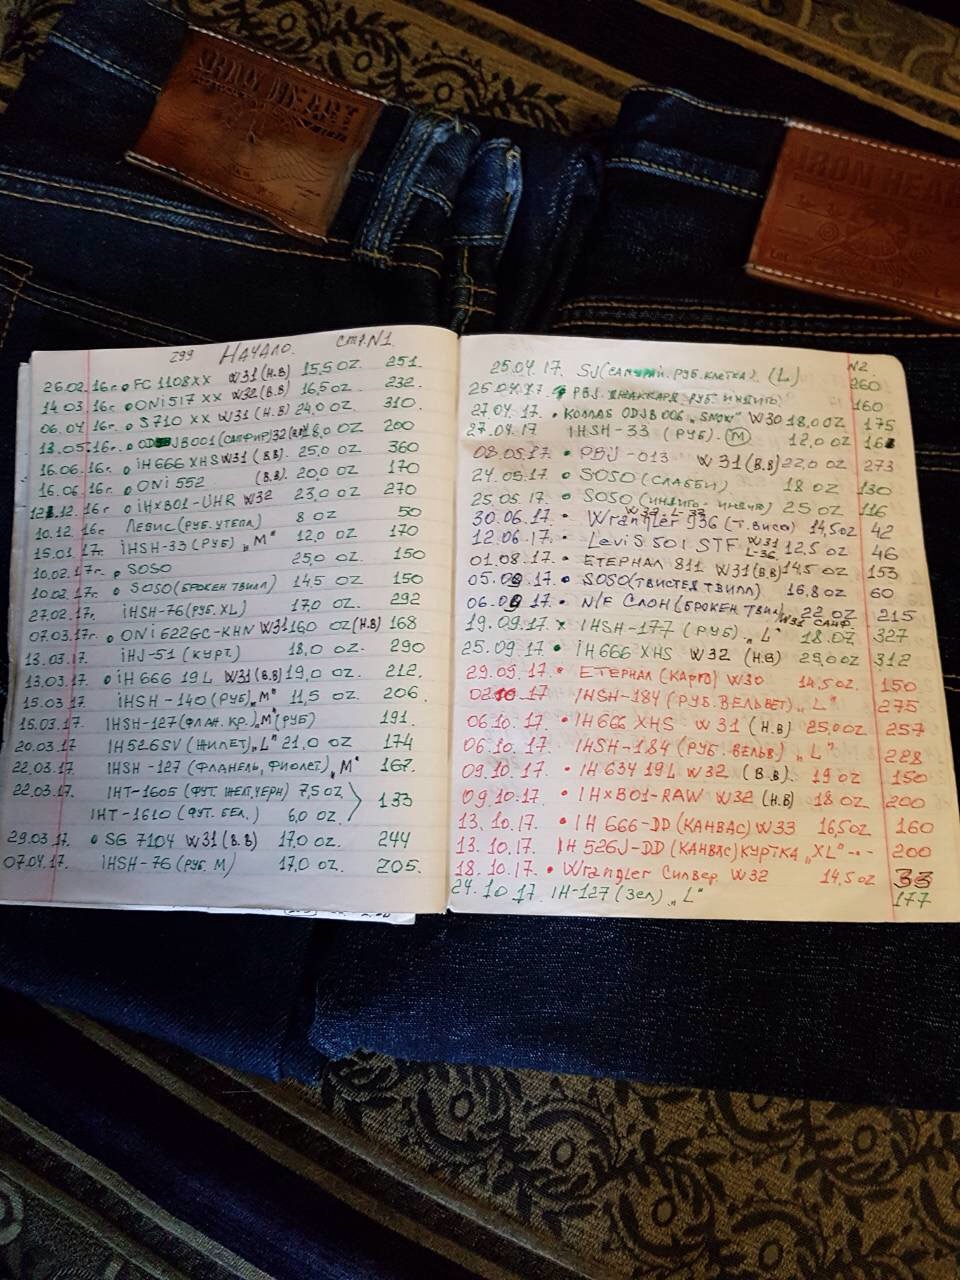 IRON HEART
IRON HEA
299 Начало. Стр. N1.
26.02.16г. • FC 1108XX W31 (Н.В) 15,5 OZ 251
14.03.16г. • ONI 517 XX W32 (В.В) 16,5 OZ. 232
06.04.16г. • S710 XX W31 (Н.В) 24,0 OZ. 310
13.05.16г. • ODJB001 (САПФИР) 32 OZ 200
16.06.16г. • iH 666 XHS W31 (В.В.) 25,0 OZ 360
16.06.16г. • ONI 552 (В.В). 20,0 OZ 170
12.16г. • iHXB01-UHR W32 23,0 OZ 270
10.12.16г. Левис (РУБ. УТЕПЛ) 8 OZ 50
15.01.17г. iHSH-33 (РУБ) „М" 12,0 OZ 170
10.02.17г. • SOSO 25,0 OZ 150
10.02.17г. • SOSO (БРОКЕН ТВИЛЛ) 14,5 OZ 150
27.02.17г. iHSH-76 (РУБ. XL) 17,0 OZ. 292
07.03.17г. • ONI 622GC-KHN W31 16,0 OZ (Н.В) 168
13.03.17. iHJ-51 (КУРТ.) 18,0 OZ. 290
13.03.17. • iH 666 19L W31 (В.В) 19,0 OZ. 212.
15.03.17 iHSH-140 (РУБ) „М" 11,5 OZ. 206.
15.03.17. IHSH-127 (ФЛАН. КР.) „М" (РУБ) 191.
20.03.17 IH526SV (ЖИЛЕТ) „L" 21,0 OZ 174
22.03.17. IHSH-127 (ФЛАНЕЛЬ, ФИОЛЕТ) „М" 167.
22.03.17. IHT-1605 (ФУТ. ЖЕЛТ, ЧЕРН) 7,5 OZ 133
IHT-1610 (ФУТ. БЕЛ.) 6,0 OZ.
29.03.17. • SG 7104 W31 (В.В) 17,0 OZ. 244
07.04.17. IHSH-76 (РУБ. М) 17,0 OZ. 205.
N2.
25.04.17. SJ (САМУРАЙ. РУБ. КЛЕТКА). (L) 260
25.04.17 PBJ ЖАККАРД РУБ. ИНДИГО 160
27.04.17. • КОЛЛАБ ODJB006 „SMOKE" W30 18,0 OZ 175
27.04.17 IHSH-33 (РУБ). (М) 12,0 OZ
08.05.17. • PBJ-013 W31 (В.В) 22,0 OZ 273
24.05.17. • SOSO (СЛАББИ) 18 OZ 130
25.05.17. • SOSO (ИНДИГО-ИНДИГО) 25 OZ 116
30.06.17. • Wrangler 936 (Т. ВИСО) 14,5 OZ 42
12.06.17. • Levi S 501 STF W31 L-36 12,5 OZ 46
01.08.17. • ЕТЕРНАЛ 811 W31 (В.В) 14,5 OZ 153
17. • SOSO (ТВИСТЕД ТВИЛЛ) 16,8 OZ 60
17. • N/F СЛОН (БРОКЕН ТВИЛ) 22 OZ 215
19.09.17 x IHSH-177 (РУБ). „L" 18.0Z 327
25.09.17 • iH 666 XHS W32 (Н.В) 312
29.09.17. • ЕТЕРНАЛ (КАРГО) W30 14,5 OZ. 150
02.10.17 IHSH-184 (РУБ. ВЕЛЬВЕТ) „L" 275
06.10.17. • IH666 XHS W31 (Н.В) 25,0 OZ 257
06.10.17. IHSH-184 (РУБ. ВЕЛЬВ) „L" 228
09.10.17. • IH 634 19L W32 (В.В). 19 OZ 150
09.10.17. • IHXB01-RAW W32 (Н.В) 18 OZ 200
13.10.17. • IH 666-DD (КАНВАС) W33 16,5OZ 160
13.10.17. IH 526J-DD (КАНВАС) КУРТКА „XL" -•- 200
18.10.17. • Wrangler Силвер W32 14,5 OZ 33
24.10.17. IH-127 (ЗЕЛ) „L" 177